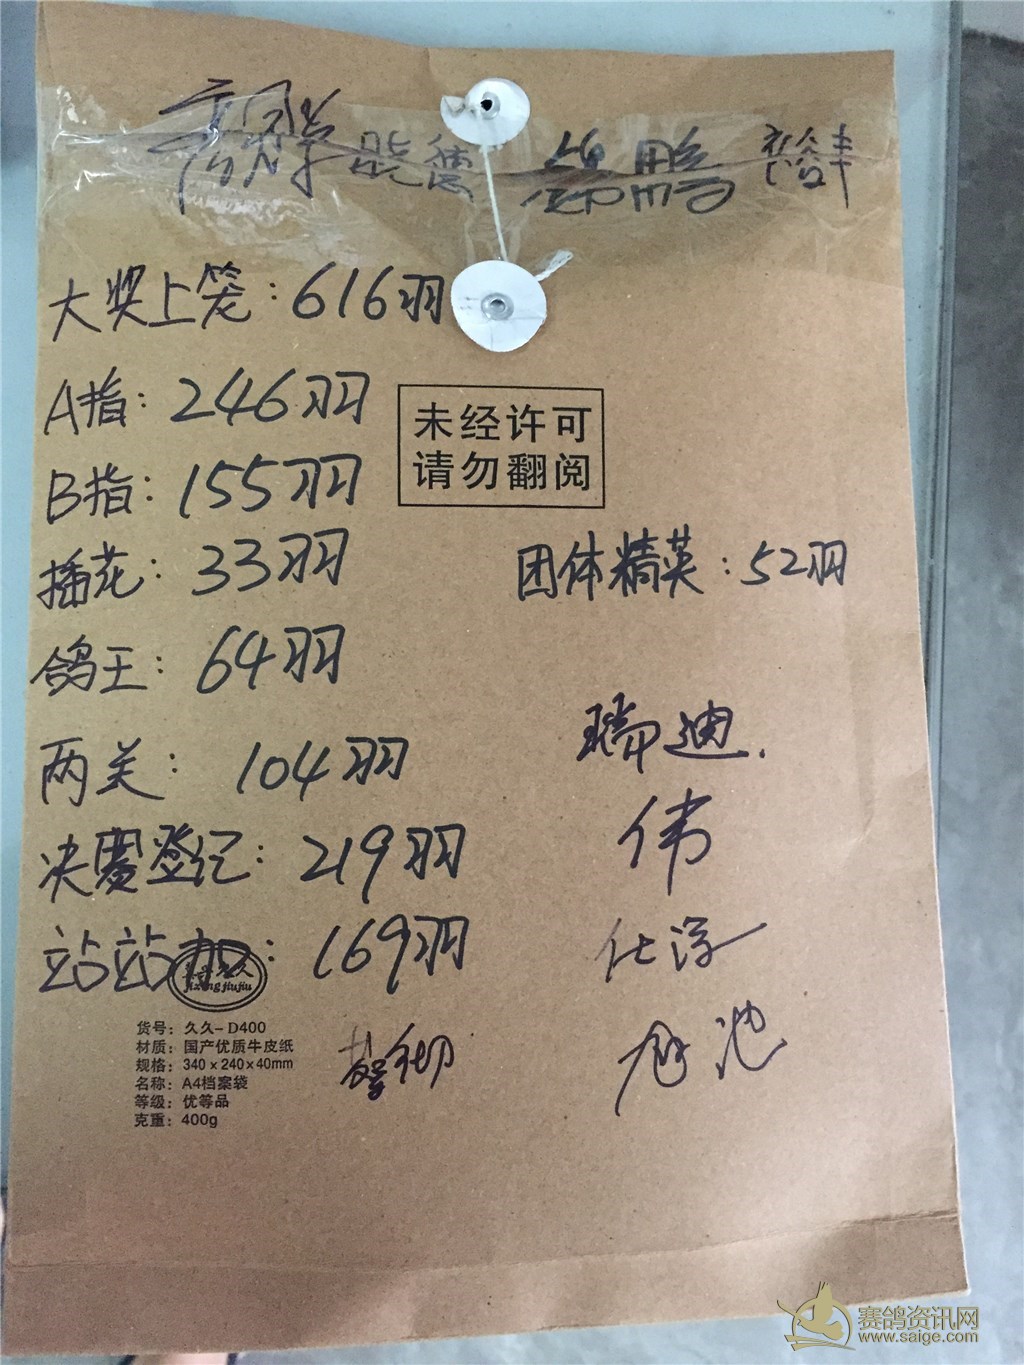 大奖上笼：616羽
A指：246羽
未经许可
请勿翻阅
B指：155羽
插花：33羽
团体精英：52羽
鸽王：64羽
两关：104羽
瑞迪.
伟
决赛登记：219羽
站站加：169羽
jiujiu
货号：久久-D400
材质：国产优质牛皮纸
规格：340×240×40mm
名称：A4档案袋
等级：优等品
克重：400g
赛鸽资讯网
www.saige.com